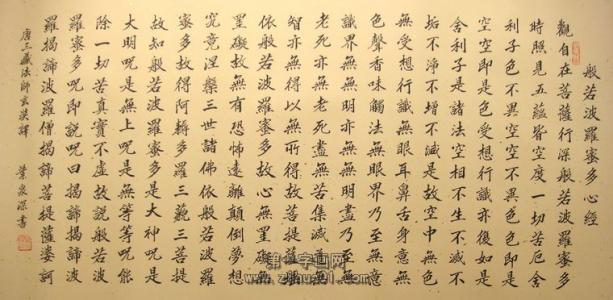 般若波羅蜜多心經
觀自在菩薩行深般若波羅蜜多
時照見五蘊皆空度一切苦厄舍
利子色不異空空不異色色即是
空空即是色受想行識亦復如是
舍利子是諸法空相不生不滅不
垢不淨不增不減是故空中無色
無受想行識無眼耳鼻舌身意無
色聲香味觸法無眼界乃至無意
識界無無明亦無無明盡乃至無
老死亦無老死盡無苦集滅道無
智亦無得以無所得故菩提薩埵
依般若波羅蜜多故心無罣礙無
罣礙故無有恐怖遠離顛倒夢想
究竟涅槃三世諸佛依般若波羅
蜜多故得阿耨多羅三藐三菩提
故知般若波羅蜜多是大神咒是
大明咒是無上咒是無等等咒能
除一切苦真實不虛故說般若波
羅蜜多咒即說咒曰揭諦揭諦波
羅揭諦波羅僧揭諦菩提薩婆訶
唐三藏法師玄奘譯 葉泉深書